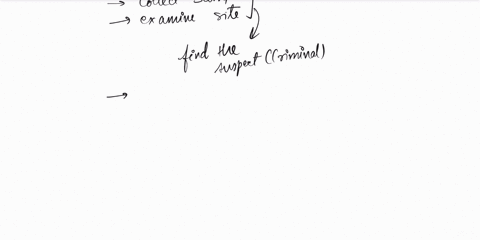 → collect
→ examine site
find the
suspect (Criminal)
→